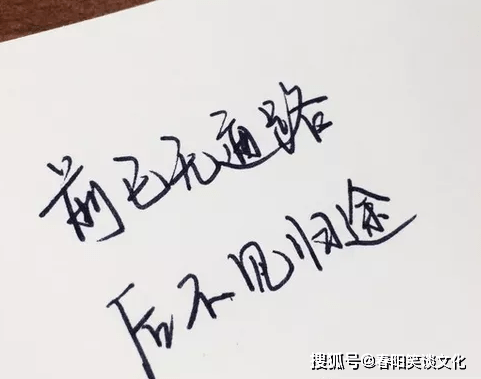 前已无通路
后不见归途
搜狐号@春阳笑谈文化